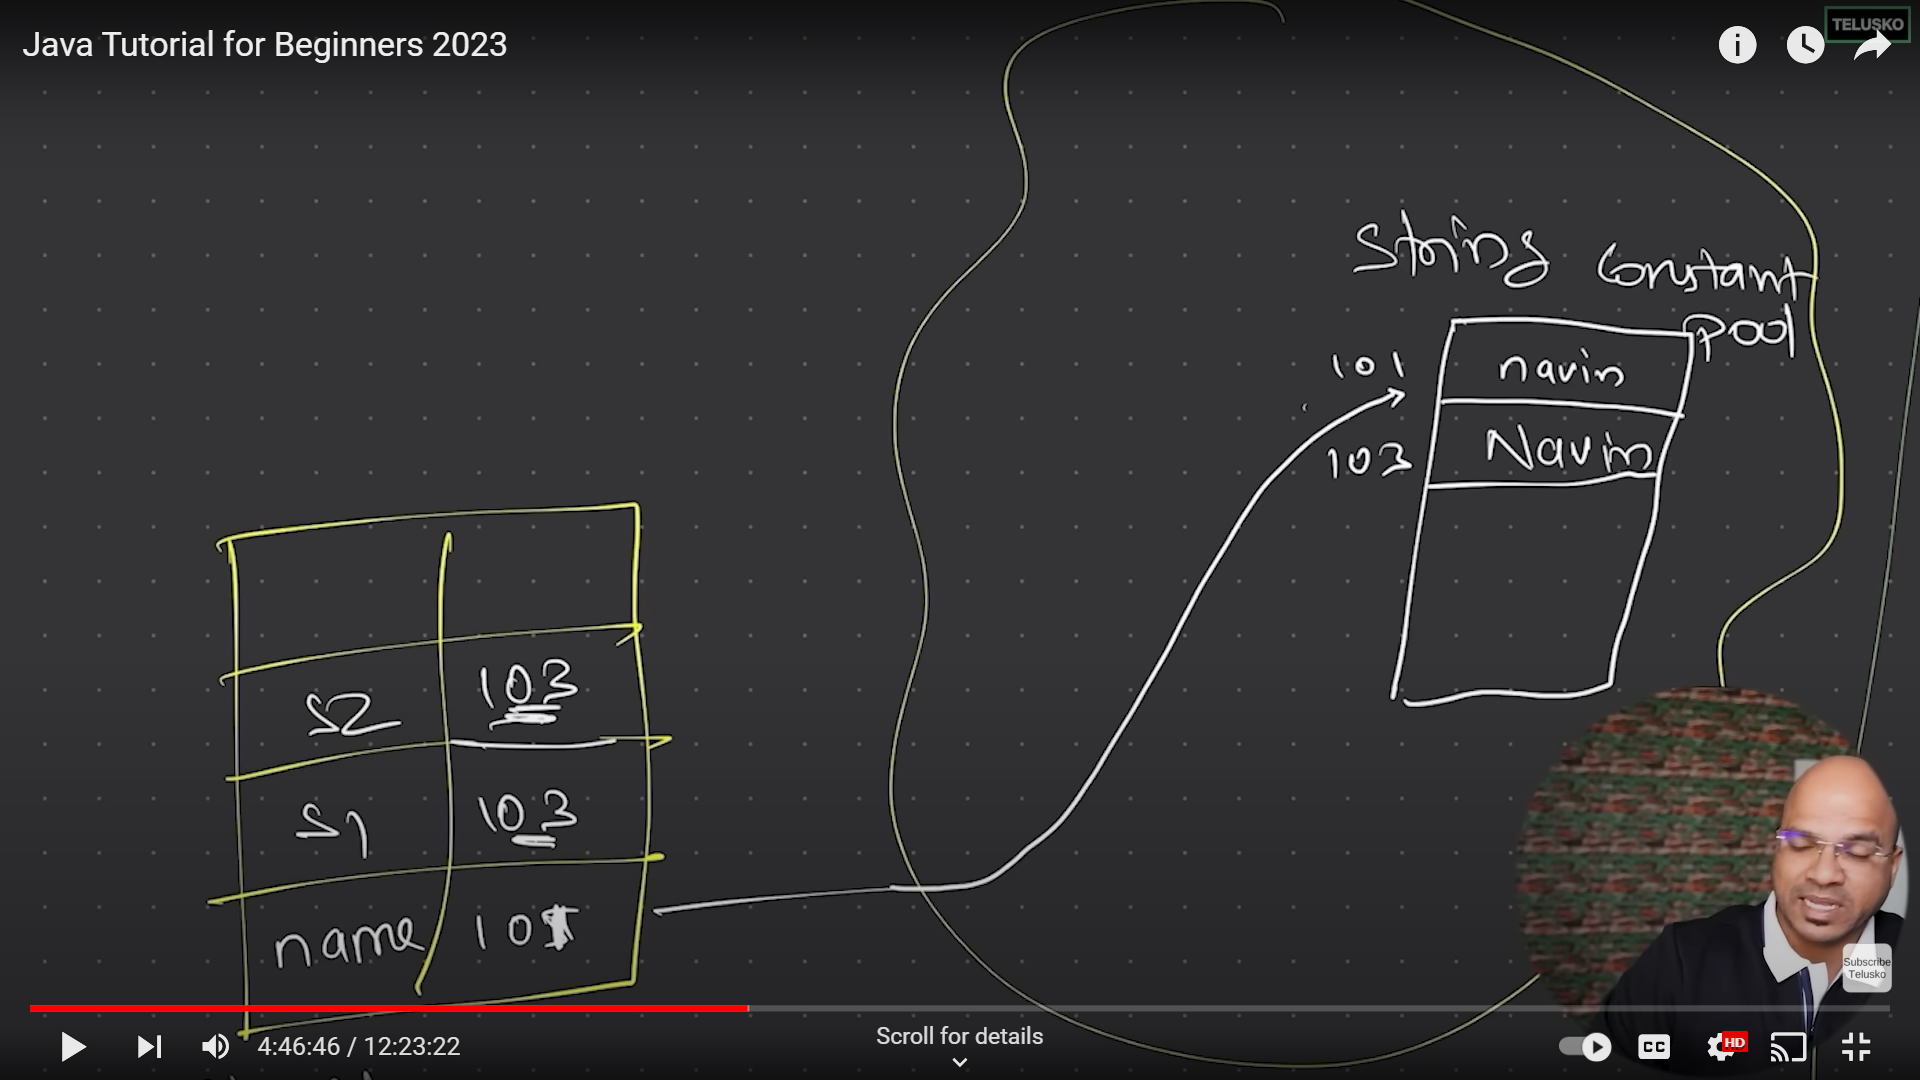 Java Tutorial for Beginners 2023
TELUSKO
String Constant
pool
101 navin
103 Navin
s2 103
s1 103
name 101
Subscribe
Telusko
4:46:46 / 12:23:22
Scroll for details
CC
HD